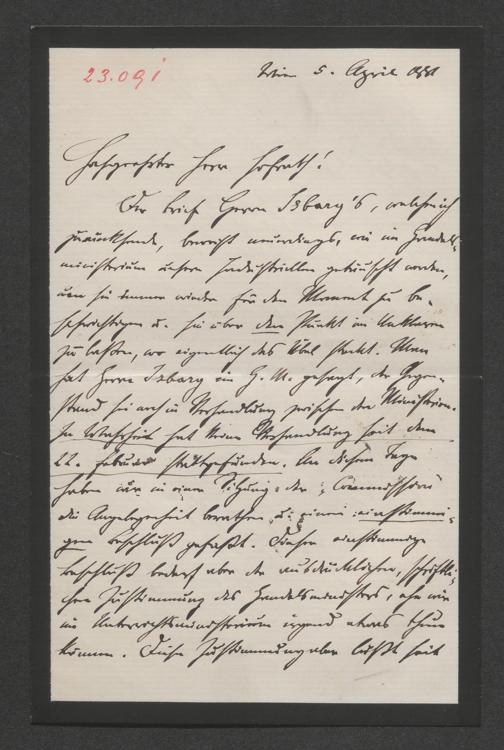 23.091
Wien 5. April 1881
Hochgeehrter Herr Hofrath!
Der Brief Herrn Isbary's, welchen ich
zurücksende, beweist neuerdings, wie im Handels-
ministerium unsere Industriellen getäuscht werden,
um sie immer wieder für den Moment zu be-
schwichtigen u. sie über den Punkt im Unklaren
zu lassen, wo eigentlich das Übel steckt. Man
hat Herrn Isbary im H. M. gesagt, der Gegen-
stand sei noch in Verhandlung zwischen den Ministerien.
In Wahrheit hat keine Verhandlung seit dem
22. Februar stattgefunden. An diesem Tage
haben wir in einer Sitzung der Commission
die Angelegenheit berathen u. einen einstimmi-
gen Beschluß gefaßt. Dieser einstimmige
Beschluß bedarf aber der ausdrücklichen, schriftli-
chen Zustimmung des Handelsministers, ehe wir
im Unterrichtsministerium irgend etwas thun
können. Diese Zustimmung aber läßt seit